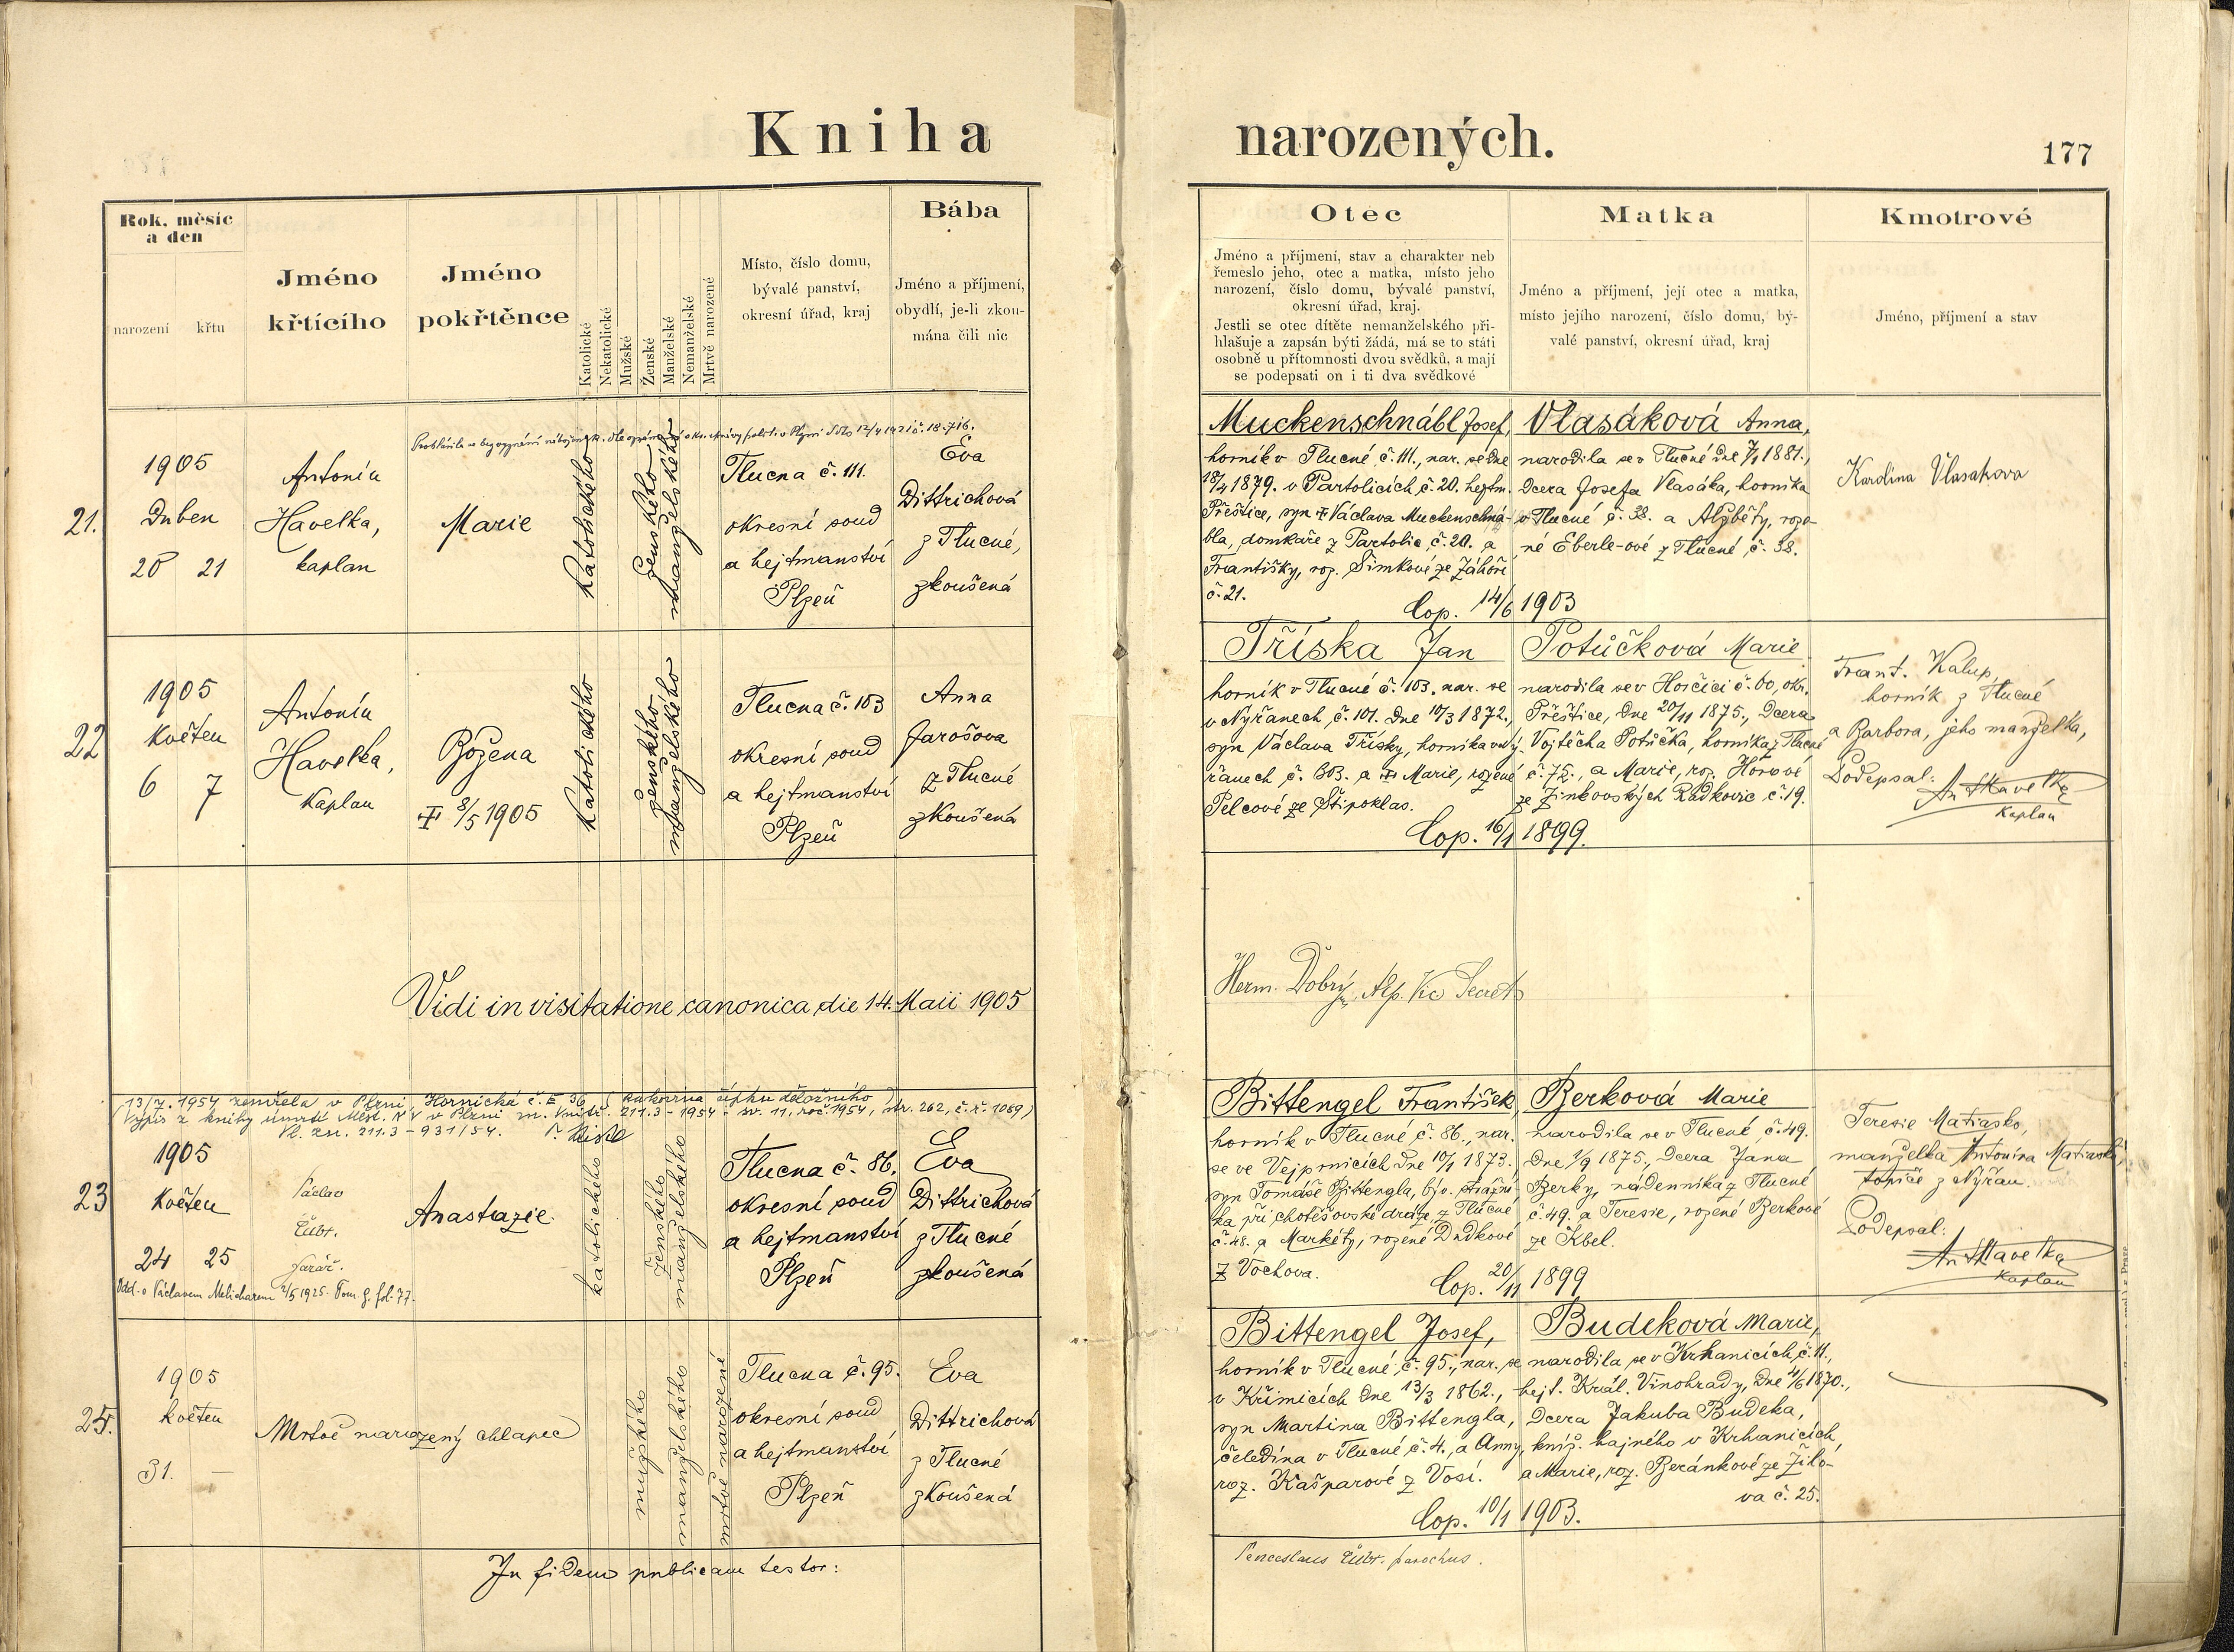 Kniha
narozených.
177
Rok, měsíc
a den
narození
křtu
Jméno
křtícího
Jméno
pokřtěnce
Katolické
Nekatolické
Mužské
Ženské
Manželské
Nemanželské
Mrtvě narozené
Místo, číslo domu,
bývalé panství,
okresní úřad, kraj
Bába
Jméno a příjmení,
obydlí, je-li zkou-
mána čili nic
Otec
Jméno a příjmení, stav a charakter neb
řemeslo jeho, otec a matka, místo jeho
narození, číslo domu, bývalé panství,
okresní úřad, kraj.
Jestli se otec dítěte nemanželského při-
hlašuje a zapsán býti žádá, má se to státi
osobně u přítomnosti dvou svědků, a mají
se podepsati on i ti dva svědkové
Matka
Jméno a příjmení, její otec a matka,
místo jejího narození, číslo domu, bý-
valé panství, okresní úřad, kraj
Kmotrové
Jméno, příjmení a stav
21.
1905
Duben
20 21
Antonín
Havelka,
kaplan
Marie
Katolického
ženského
manželského
Tlucna č. 111.
okresní soud
a hejtmanství
Plzeň
Eva
Dittrichová
z Tlucné,
zkoušená
Muckenschnábl Josef,
horník v Tlucné č. 111., nar. se dne
18/4 1879. v Partolicích č. 20. hejtm.
Přeštice, syn Václava Muckenschná-
bla, domkaře z Partolic č. 20. a
Františky, roz. Šimkové ze Záhoří
č. 21.
Vlasáková Anna,
narodila se v Tlucné dne 7/1 1881.,
dcera Josefa Vlasáka, horníka
v Tlucné č. 38. a Alžběty, roze-
né Eberle-ové z Tlucné č. 38.
Cop. 14/6 1903
Karolina Vlasakova
22
1905
Květen
6 7
Antonín
Havelka,
Kaplan
Božena
8/5 1905
Katolického
ženského
manželského
Tlucna č. 103
okresní soud
a hejtmanství
Plzeň
Anna
Jarošova
z Tlucné
zkoušená
Tříska Jan
horník v Tlucné č. 103. nar. se
v Nyřanech, č. 101. dne 10/3 1872.,
syn Václava Třísky, horníka v Ný-
řanech č. 303. a Marie, rozené
Pelcové ze Štipoklas.
Potůčková Marie
narodila se v Horčici č. 60, okr.
Přeštice, dne 20/11 1875., dcera
Vojtěcha Potůčka, horníka z Tlucné
č. 75., a Marie, roz. Hórové
ze Žinkovských Radkovic č. 19.
Cop. 16/1 1899.
Frant. Kalup,
horník z Tlucné
a Barbora, jeho manželka,
Podepsal:
Ant Havelka
Kaplan
Vidi in visitatione canonica die 14. Maii 1905
Herm. Dobrý
13/7. 1954 zemřela v Plzni, Hornická č. 36 (rakovina čípku děložního)
(Výpis z knihy úmrtí Měst. NV v Plzni zn. Vnitř. 211.3 - 1954 - sv. 11, roč. 1954, str. 262, č. ř. 1069)
Vl. zn. 211.3 - 931/54.
23
1905
Květen
24 25
Václav
Čubr.
farář.
Anastazie
katolického
ženského
manželského
Tlucna č. 86.
okresní soud
a hejtmanství
Plzeň
Eva
Dittrichová
z Tlucné
zkoušená
Odd. s Václavem Melicharem 2/5 1925. Tom. g. fol. 77.
Bittengel František,
horník v Tlucné č. 86., nar.
se ve Vejprnicích dne 10/1 1873.,
syn Tomáše Bittengla, býv. strážní-
ka při chotěšovské dráze z Tlucné
č. 48. a Markéty, rozené Dudkové
z Vochova.
Berková Marie
narodila se v Tlucné č. 49.
dne 1/9 1875., dcera Jana
Berky, nádenníka z Tlucné
č. 49. a Teresie, rozené Berkové
ze Kbel.
Cop. 20/11 1899
Teresie Matiasko,
manželka Antonína Matiaska,
topiče z Nyřan.
Podepsal:
Ant Havelka
Kaplan
25.
1905
květen
31. —
Mrtvě narozený chlapec
mužského
manželského
mrtvě narozené
Tlucna č. 95.
okresní soud
a hejtmanství
Plzeň
Eva
Dittrichová
z Tlucné
zkoušená
Bittengel Josef,
horník v Tlucné, č. 95., nar. se
v Křimicích dne 13/3 1862.,
syn Martina Bittengla,
čeledína v Tlucné č. 4., a Anny,
roz. Kašparové z Vosí.
Budeková Marie,
narodila se v Krhanicích, č. 11.,
hejt. Král. Vinohrady, dne 4/6 1870.,
dcera Jakuba Budeka,
kníž. hajného v Krhanicích
a Marie, roz. Beránkové ze Žiló-
va č. 25.
Cop. 10/1 1903.
In fidem publicam testor:
Venceslaus Čubr. parochus.